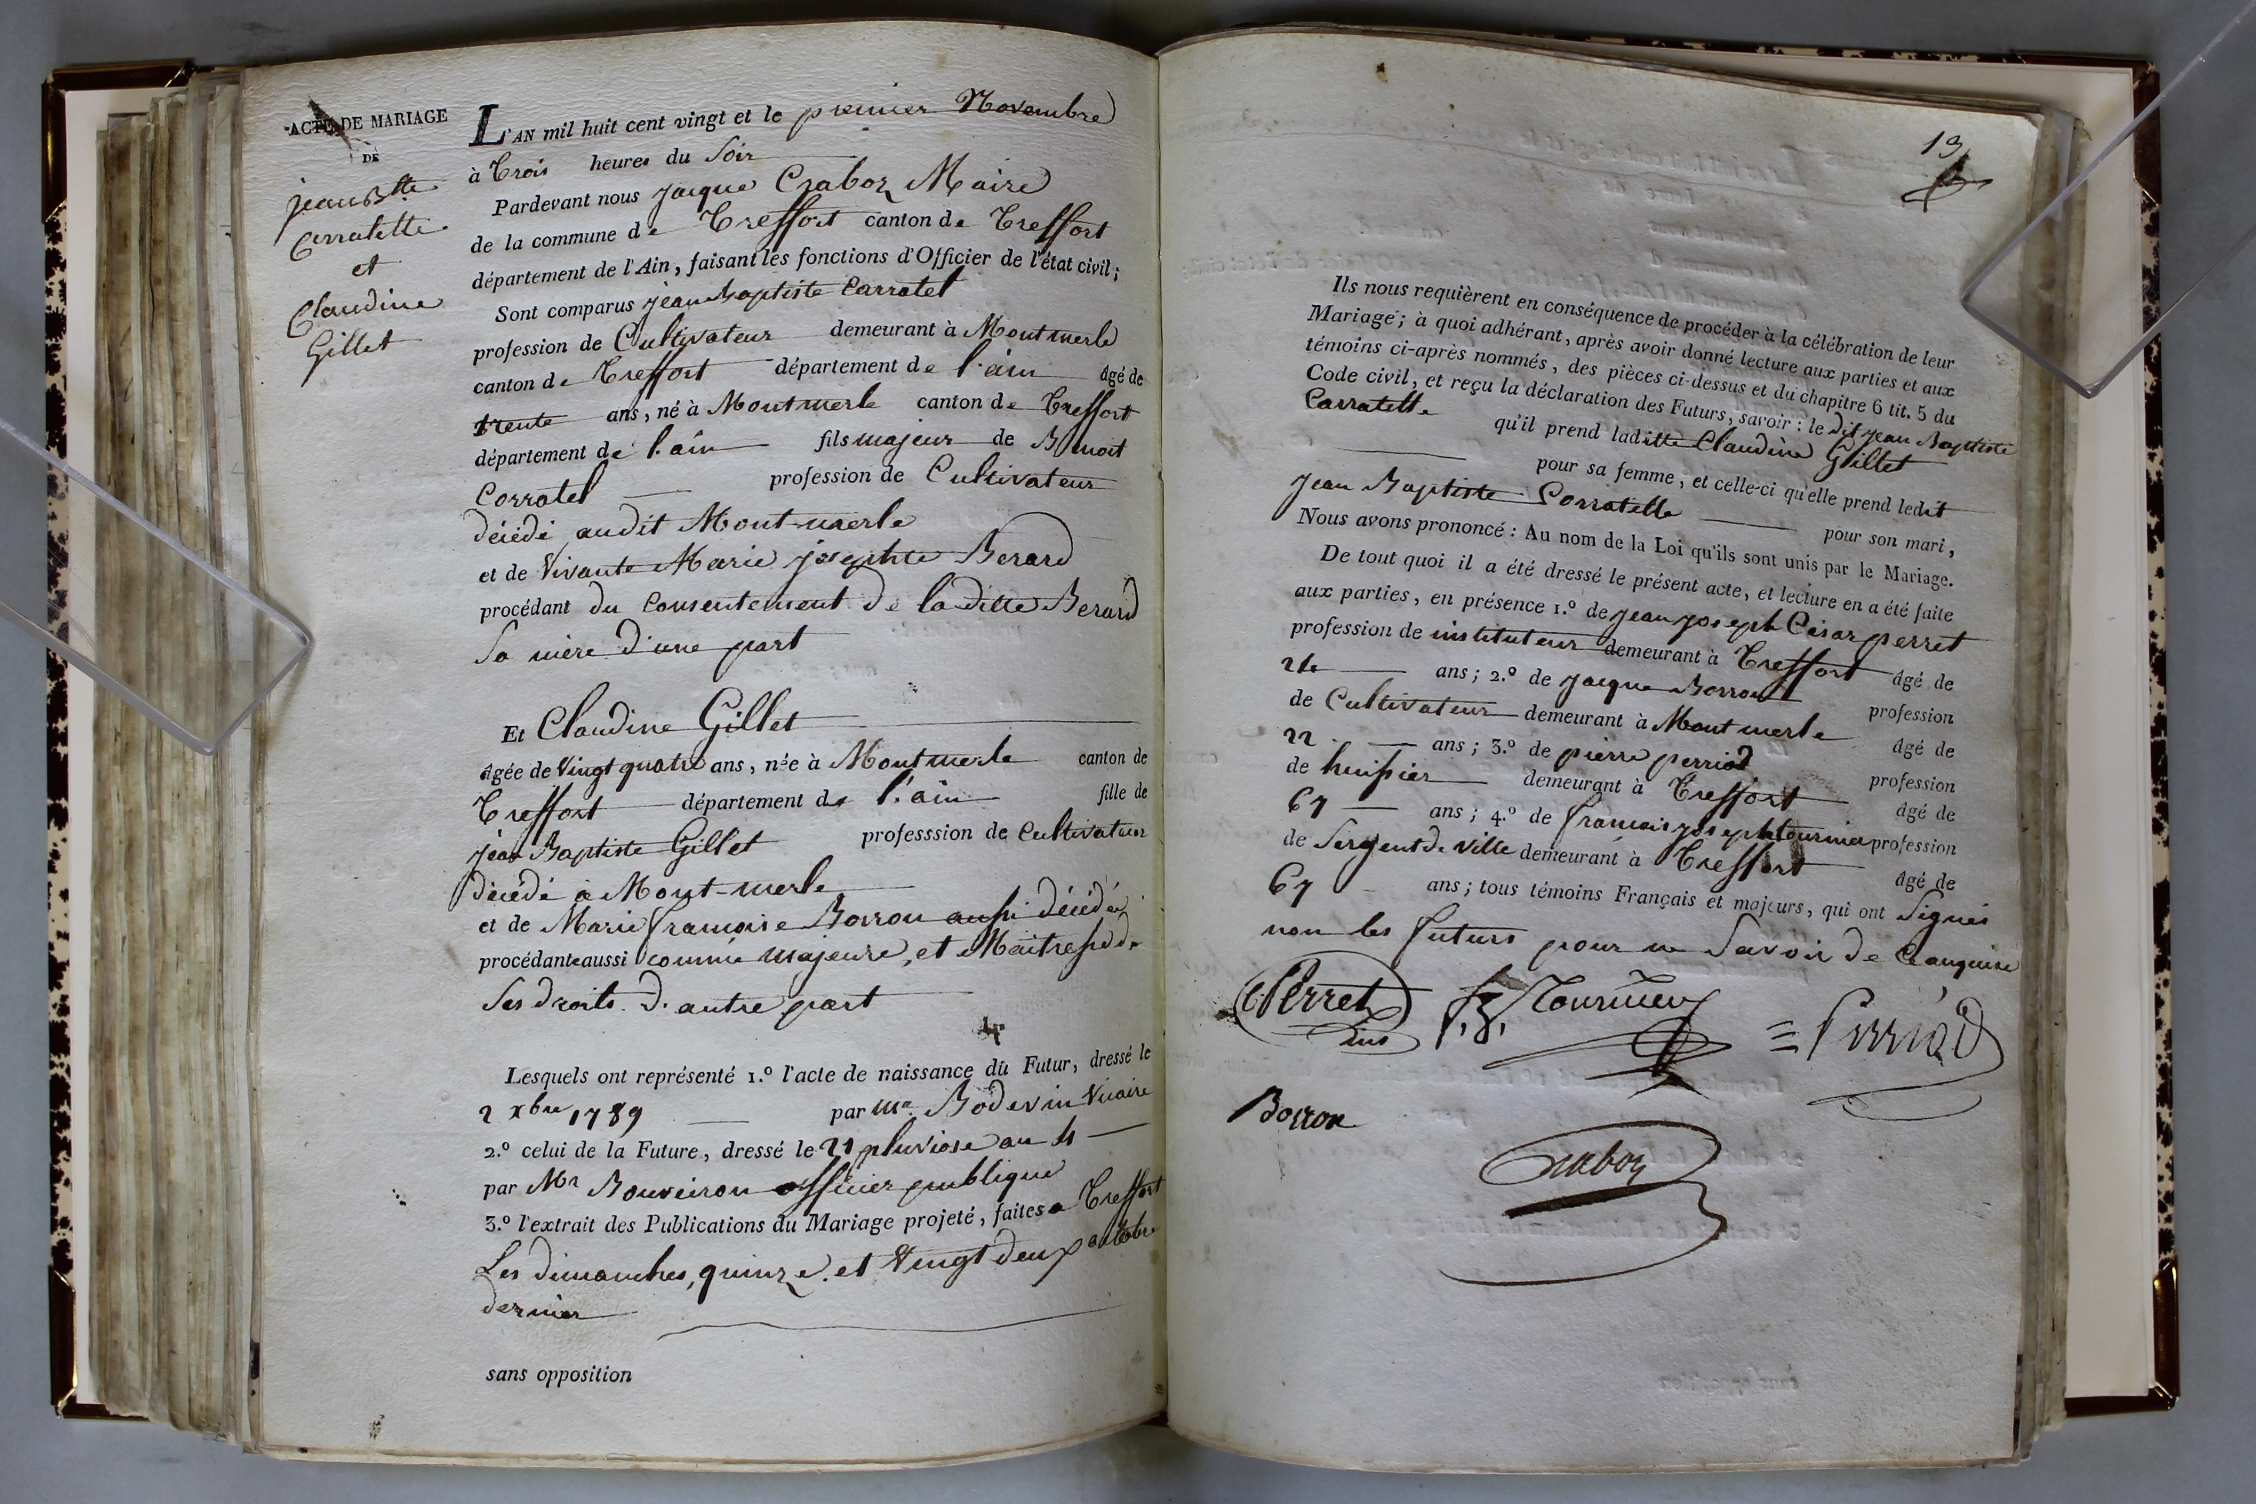 ACTE DE MARIAGE
DE
jean Bte
Carratette
et
Claudine
Gillet
L'AN mil huit cent vingt et le premier Novembre
à trois heures du Soir
Pardevant nous jacque Craboz Maire
de la commune de Treffort canton de Treffort
département de l'Ain, faisant les fonctions d'Officier de l'état civil;
Sont comparus jean Baptiste Carratel
profession de Cultivateur demeurant à Montmerle
canton de Treffort département de l'ain âgé de
trente ans, né à Montmerle canton de Treffort
département de l'ain fils majeur de Benoit
Corratel profession de Cultivateur
décédé audit Mont-merle
et de Vivante Marie josephte Berard
procédant du Consentement de laditte Berard
Sa mère d'une part
Et Claudine Gillet
âgée de vingt quatre ans, née à Montmerle canton de
Treffort département de l'ain fille de
jean Baptiste Gillet professsion de Cultivateur
décédé à Mont-merle
et de Marie françoise Borron aussi décédée
procédante aussi comme majeure, et Maitresse de
Ses droits d'autre part
Lesquels ont représenté 1.º l'acte de naissance du Futur, dressé le
2 xbre 1789 par Mr Bodevin Vicaire
2.º celui de la Future, dressé le 21 pluviose an 4
par Mr Bouveiron officier publique
3.º l'extrait des Publications du Mariage projeté, faites a Treffort
Les dimanches, quinze et Vingt deux octobre
dernier
sans opposition
13
Ils nous requièrent en conséquence de procéder à la célébration de leur
Mariage; à quoi adhérant, après avoir donné lecture aux parties et aux
témoins ci-après nommés, des pièces ci-dessus et du chapitre 6 tit. 5 du
Code civil, et reçu la déclaration des Futurs, savoir: le dit jean Baptiste
Carratelle qu'il prend laditte Claudine Gillet
pour sa femme, et celle-ci qu'elle prend ledit
jean Baptiste Corratelle pour son mari,
Nous avons prononcé: Au nom de la Loi qu'ils sont unis par le Mariage.
De tout quoi il a été dressé le présent acte, et lecture en a été faite
aux parties, en présence 1.º de jean joseph Cesar perret
profession de instituteur demeurant à Treffort âgé de
ans; 2.º de jacque Borron profession
de Cultivateur demeurant à Mont merle âgé de
22 ans; 3.º de pierre perriod profession
de huissier demeurant à Treffort âgé de
67 ans; 4.º de françois joseph tournier profession
de Sergent de ville demeurant à Treffort âgé de
67 ans; tous témoins Français et majeurs, qui ont Signés
non les futurs pour ne Savoir de Ce enquis
Perret
F. J. Tournier
Perriod
Borron
Craboz